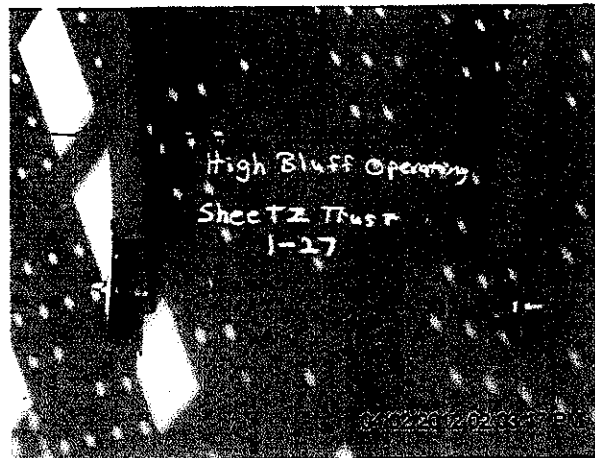 High Bluff Operating
SheeTZ Trust
1-27